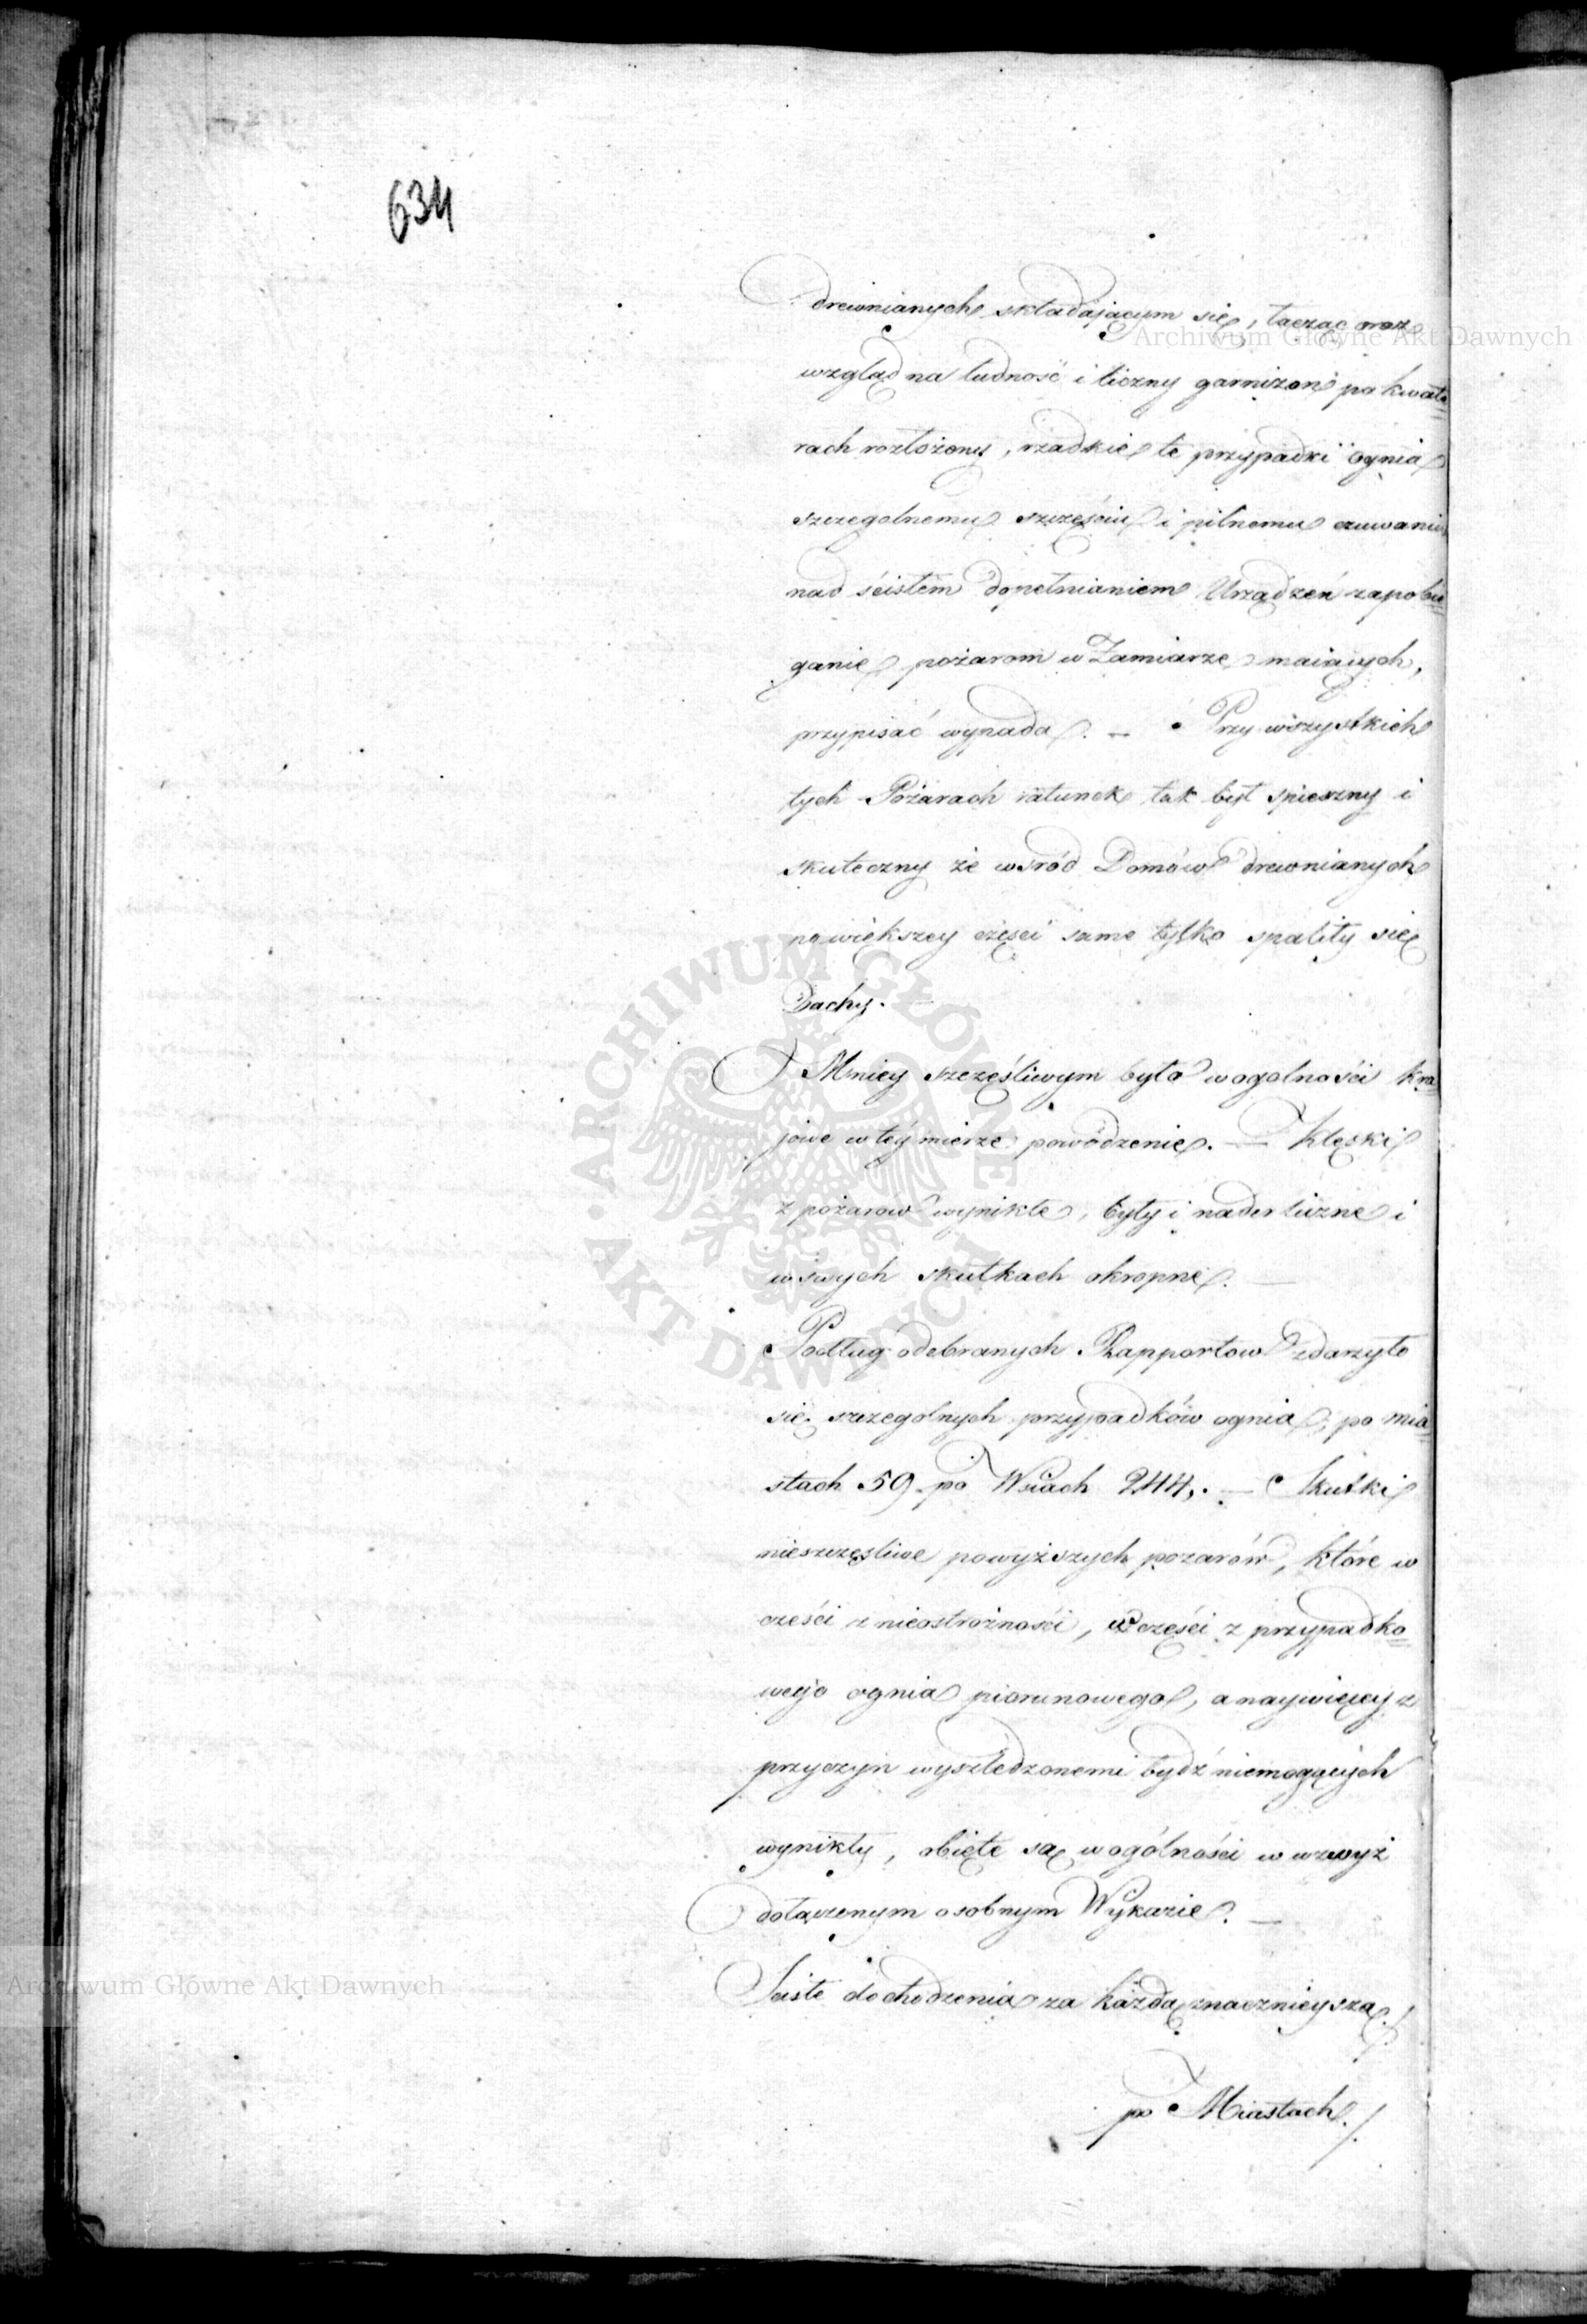 634
drewnianych składającym się, łącząc oraz
wzgląd na ludność i liczny garnizon po kwate=
rach rozłożony, rzadkie te przypadki ognia
szczegolnemu szczęściu i pilnemu czuwaniu
nad ścisłem dopełnianiem Urządzeń zapobie=
ganie pożarom w Zamiarze maiących,
przypisać wypada. — Przy wszystkich
tych Pożarach ratunek tak był spieszny i
skuteczny że wsród Domów drewnianych
powiększey części same tylko spaliły się
Dachy. —
Mniey szczęśliwym było w ogolności kra=
jowe w téy mierze powodzenie. — Klęski
z pożarow wynikłe, były i nader liczne i
w swych skutkach okropne. —
Podług odebranych Rapportow zdarzyło
się szczegolnych przypadków ognia, po mia=
stach 59. po Wsiach 244,. — Skutki
nieszczęsliwe powyższych pozarów, które w
części z nieostrożności, w części z przypadko=
wego ognia piorunowego, a naywięcey z
przyczyn wyszledzonemi bydź niemogących
wynikły, obięte są w ogólności w wzwyż
dołączonym osobnym Wykazie. —
Sciste dochodzenia za każdą znacznieyszą./
po Miastach./.
Archiwum Główne Akt Dawnych
ARCHIWUM GŁÓWNE AKT DAWNYCH
Archiwum Główne Akt Dawnych